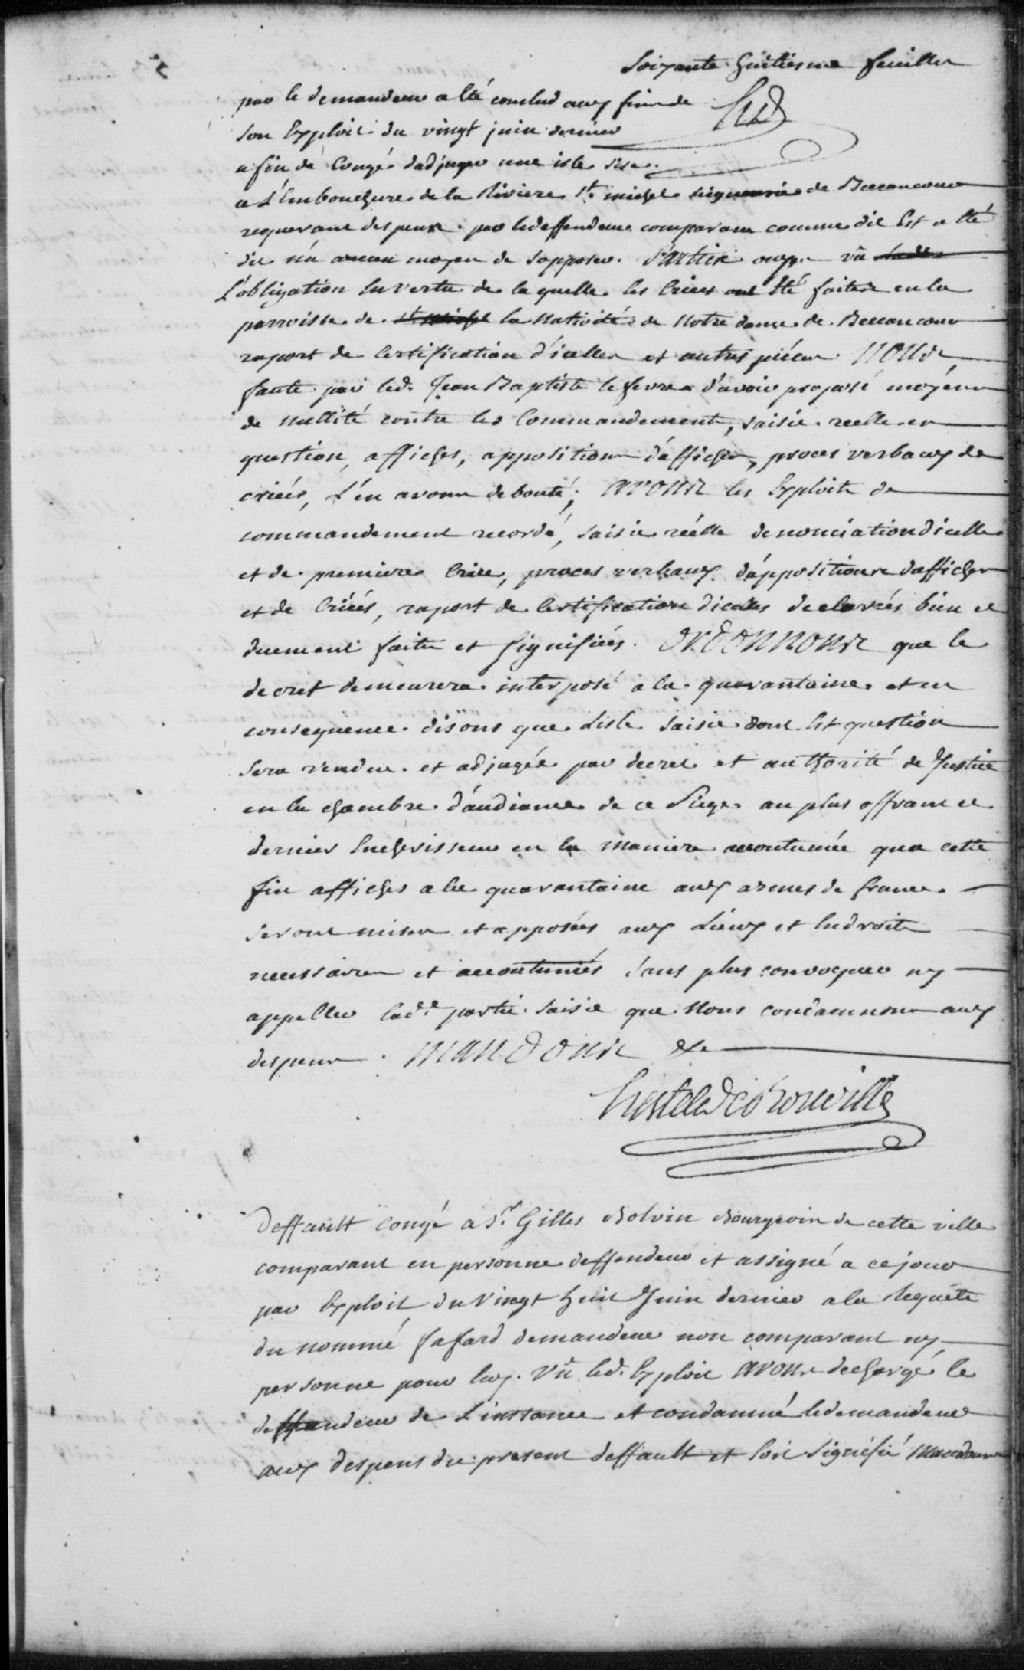 Soixante huitiesme feuillet
par le demandeur a été conclud aux fins de
son Exploit du vingt juin dernier
afin de Congé d'adjuger une isle sise
a L'Embouchure de la Riviere St. michel seigneurie de Beccancour
requerant despens. par ledeffendeur comparant comme dit Est a été
dit n'a aucun moyen de s'apposer. Parties ouyes vû
L'obligation En vertu de laquelle les Criées ont été faites en la
parroisse de la Nativité de Notre dame de Beccancour
raport de Certification d'icelles et autres piéces Nous,
faute par led. Jean Baptiste lefevre d'avoir proposé moyens
de nullité contre les Commandement, saisie reelle en
question, affiches, apposition d'affiches, proces verbaux de
criées, L'en avons debouté; avons les Exploits de
commandement recordé, saisie réelle denonciation dicelle
et de premiere Criée, proces verbaux d'appositions d'affiches
et de Criéés, raport de Certification dicelles declarées bien et
duement faits et signifiées. Ordonnons que le
decret demeurera interposé a la quarantaine et en
consequence disons que Lisle saisie dont Est question
sera vendue et adjugée par decret et authorité de Justice
en la chambre d'audiance de ce Siege au plus offrant et
dernier Encherisseur en la maniere accoutumée qua cette
fin affiches a la quarantaine aux armes de france
seront mises et apposées aux Lieux et Endroits
necessaires et accoutumés sans plus convoquer ny
appeller lade. partie saisie que Nous condamnons aux
despens. Mandons &c
hertel de Rouville
Deffault congé a Sr. Gilles Bolvin Bourgeois de cette ville
comparant en personne deffendeur et assigné a ce jour
par Exploit du Vingt huit Juin dernier a la Requête
du nommé fafard demandeur non comparant ny
personne pour luy. Vû led. Exploit avons dechargé le
deffendeur de L'instance et condamné ledemandeur
aux despens du present deffault et soit signéfié Mandons